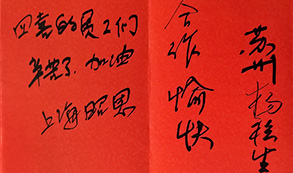 四喜的员工们
辛苦了.加油
上海昭恩
合作愉快
苏州杨
生